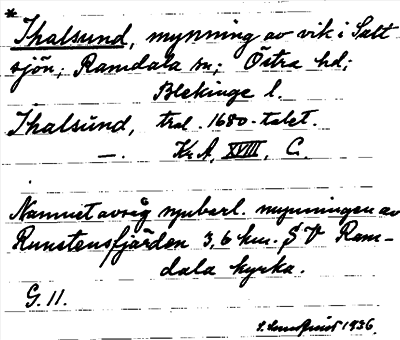 *
Ihalsund, mynning av vik i Salt
sjön; Ramdala sn; Östra hd;
Blekinge l.
Ihalsund, trol. 1680-talet.
—. Kr.A, XVIII, C.
Namnet avsåg uppenbarl. mynningen av
Runstensfjärden 3,6 km. SV Ram-
dala kyrka.
G. 11.
1936.